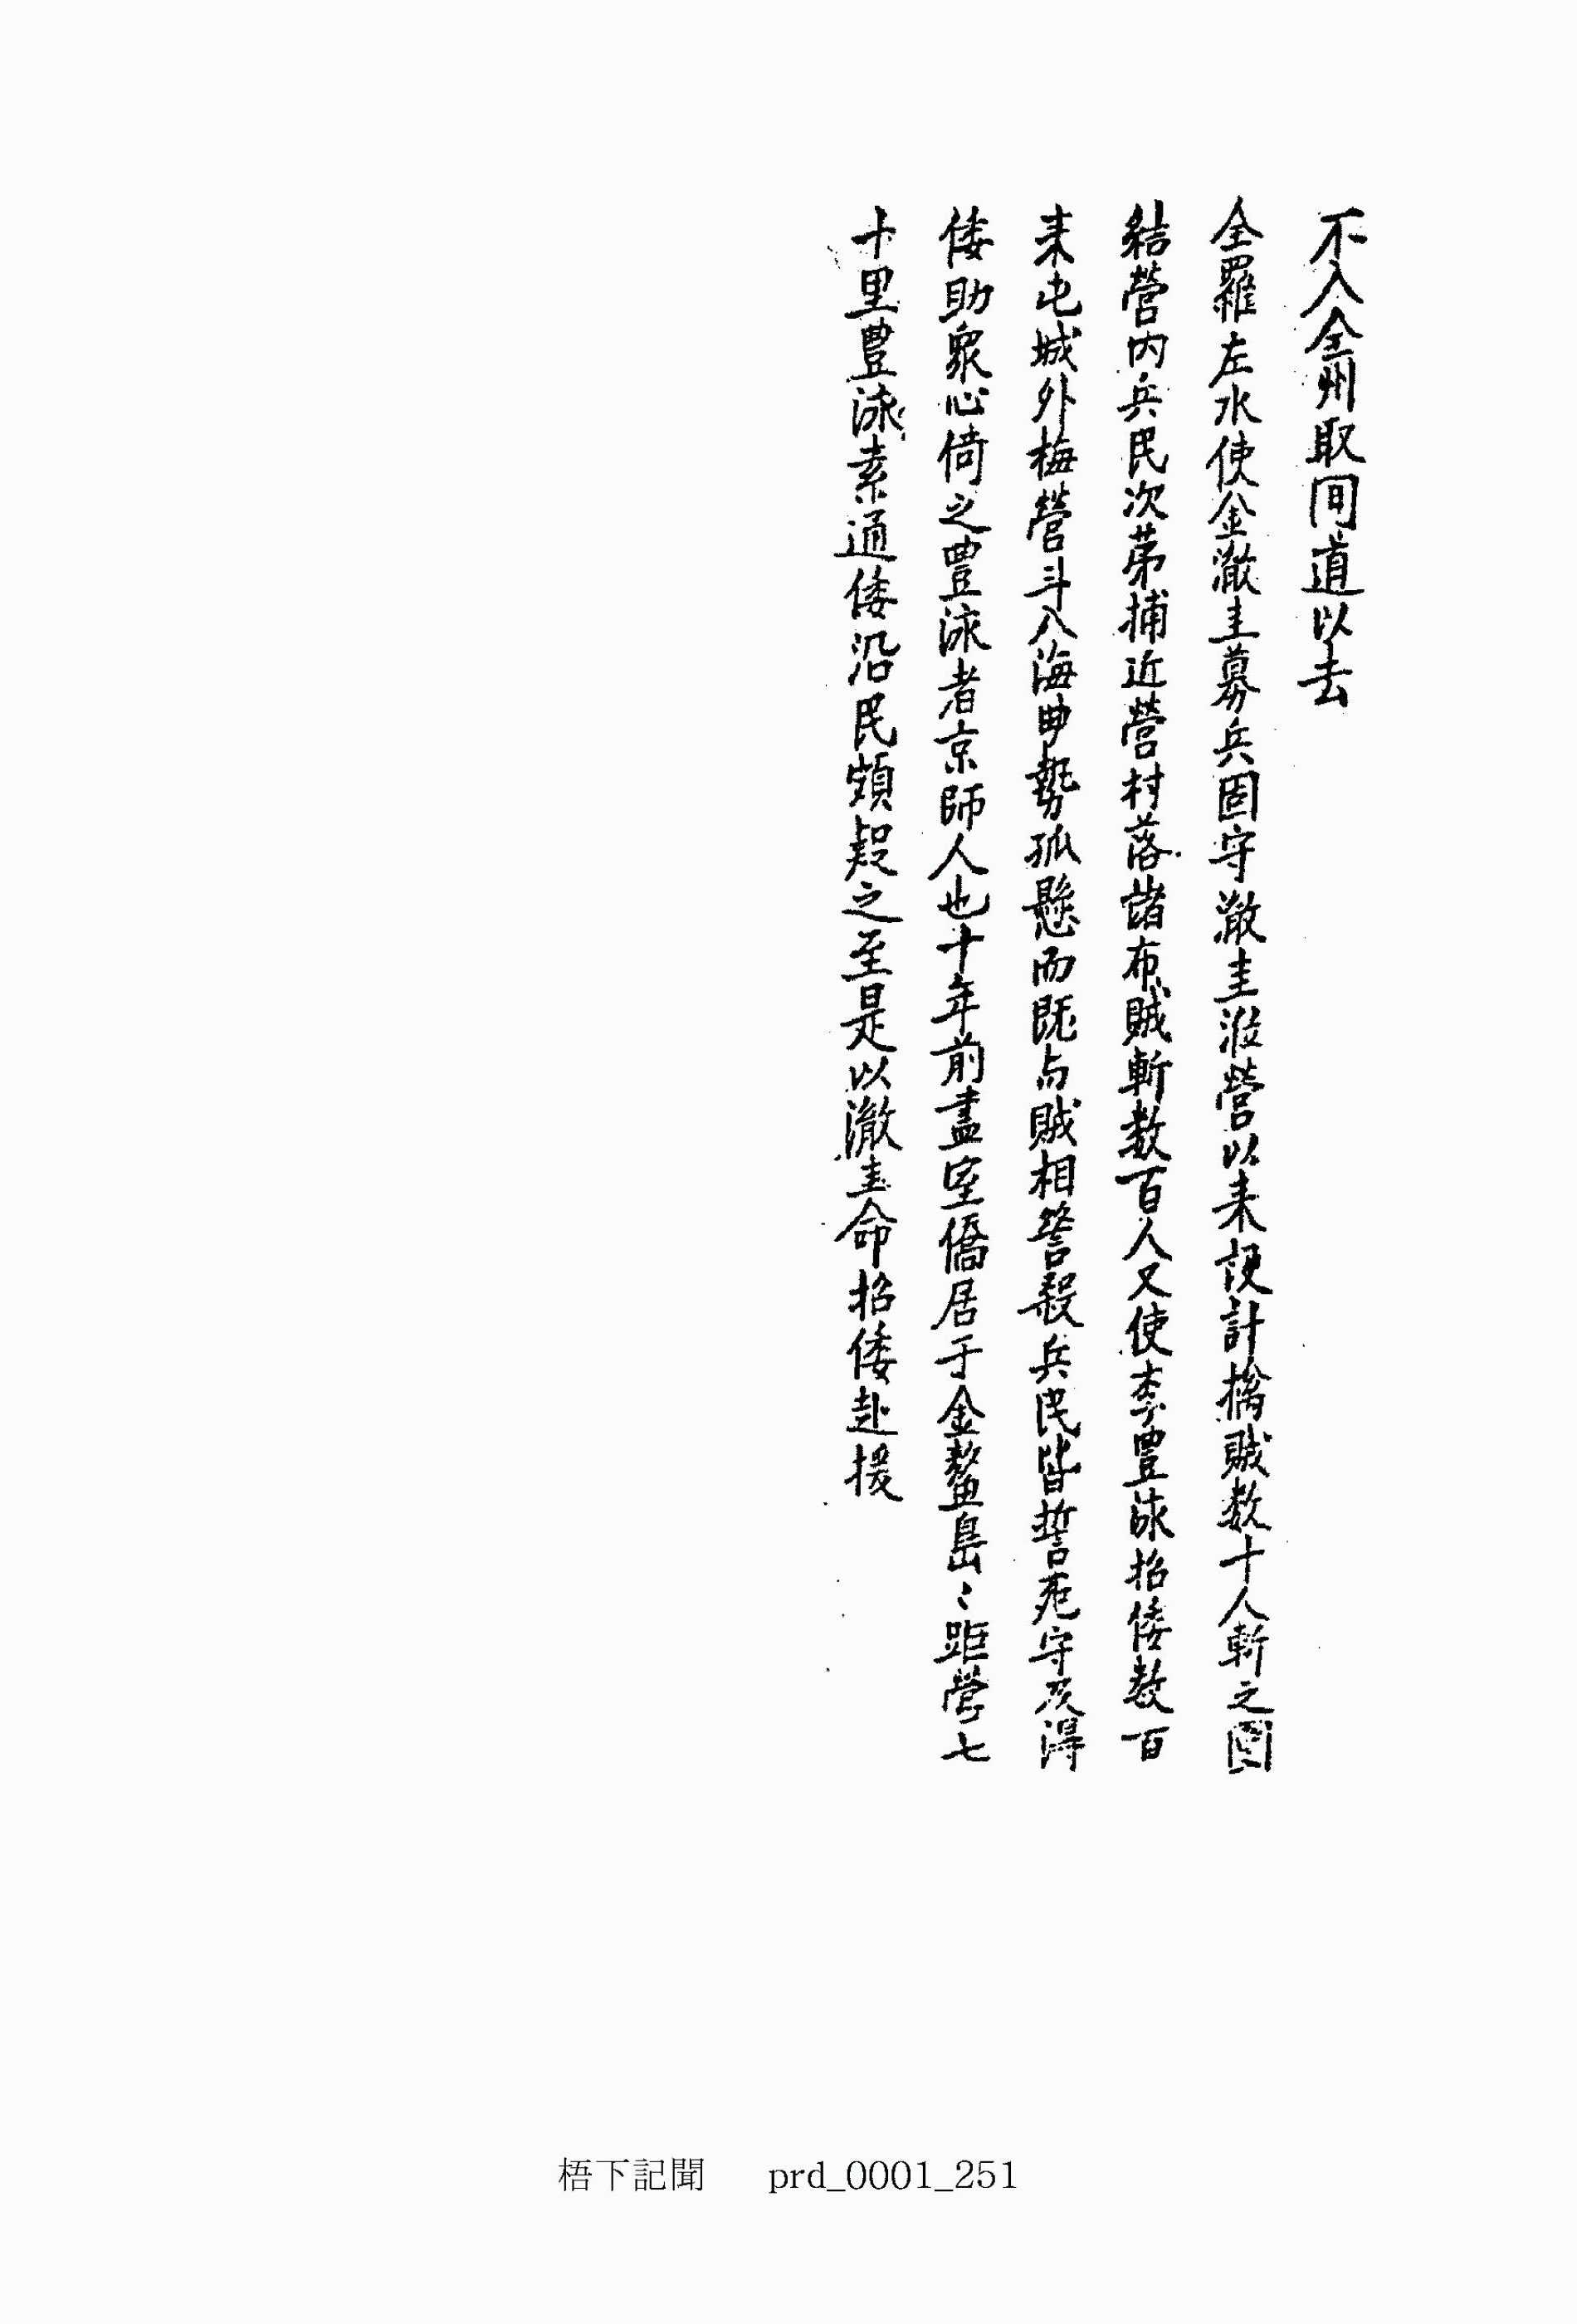 不入全州取间道以去
全羅左水使金澈圭募兵固守澈圭涖營以来設計擒賊数十人斬之團
結營内兵民次苐捕近營村落諸布賊斬数百人又使李豊泳招倭数百
来屯城外梅營斗入海曲勢孤懸而既与賊相讐殺兵民皆誓死守及得
倭助衆心倚之豊泳者京師人也十年前盡室僑居于金鰲島〻距營七
十里豊泳素通倭沿民頗疑之至是以澈圭命招倭赴援
梧下記聞 prd_0001_251